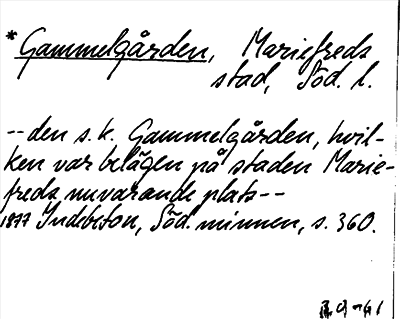 * Gammelgården, Mariefreds
stad, Söd. l.
-- den s.k. Gammelgården, hvil-
ken var belägen på staden Marie-
freds nuvarande plats --
1877 Indebetou, Söd. minnen, s. 360.